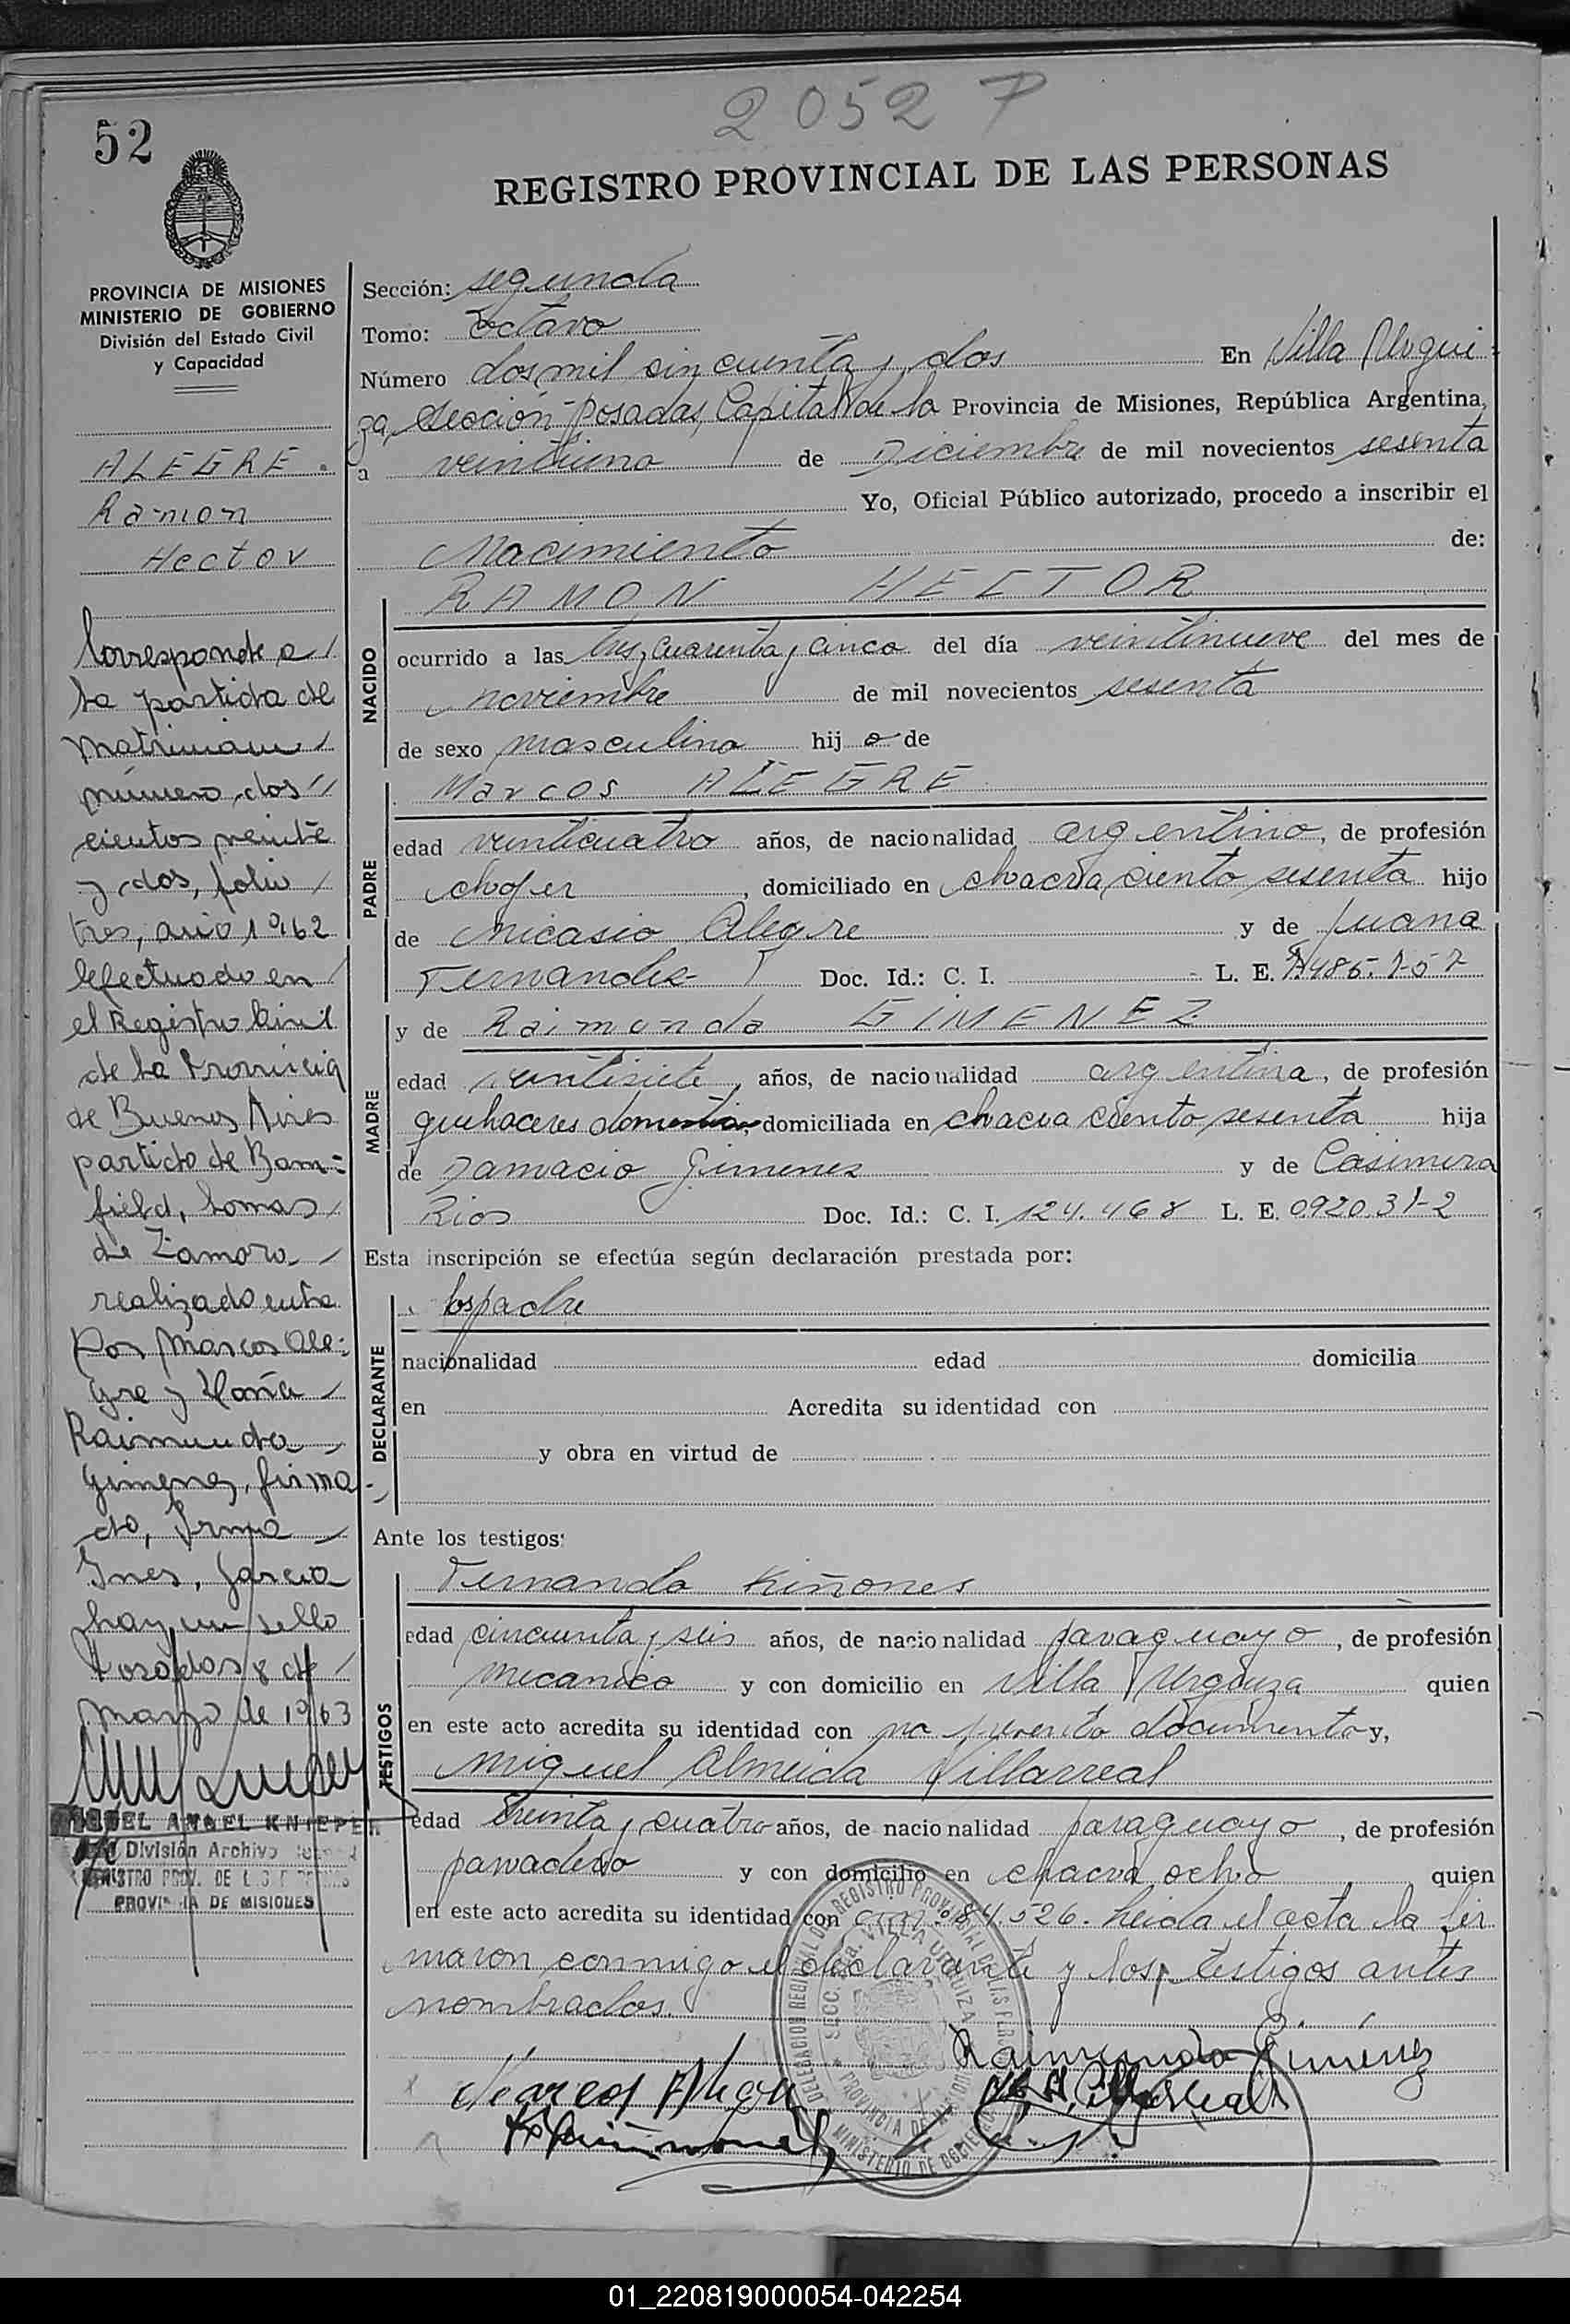 2052 P
52
REGISTRO PROVINCIAL DE LAS PERSONAS
PROVINCIA DE MISIONES
MINISTERIO DE GOBIERNO
División del Estado Civil
y Capacidad
ALEGRE.
Ramon
Hector
Corresponde a
la partida de
matrimonio
número dos
cientos veinte
y dos, folio
tres, año 1962
efectuado en
el Registro Civil
de la Provincia
de Buenos Aires
partido de Bam=
field, Lomas
de Zamora
realizado entre
Por Marcos Ale=
gre y María
Raimunda
Gimenez, firma
do, Irma
Ines, Garcia
hay un sello
Posadas 8 de
marzo de 1963
MIGUEL ANGEL KNIEPER
División Archivo
REGISTRO PROV. DE LAS PERSONAS
PROVINCIA DE MISIONES
Sección: segunda
Tomo: Octavo
Número dos mil cincuenta y dos En Villa Urqui=
za, Sección Posadas, Capital de la Provincia de Misiones, República Argentina,
a veintiuno de Diciembre de mil novecientos sesenta
Yo, Oficial Público autorizado, procedo a inscribir el
Nacimiento de:
RAMON HECTOR
NACIDO
ocurrido a las tres, cuarenta y cinco del día veintinueve del mes de
noviembre de mil novecientos sesenta
de sexo masculino hij o de
Marcos ALEGRE
PADRE
edad veinticuatro años, de nacionalidad argentino, de profesión
chofer, domiciliado en chacra ciento sesenta hijo
de Nicasio Alegre y de Juana
Fernandez Doc. Id.: C. I. L. E. 7.485.757
y de Raimunda GIMENEZ
MADRE
edad veintisiete, años, de nacionalidad argentina, de profesión
quehaceres domesticos, domiciliada en chacra ciento sesenta hija
de Damacio Gimenez y de Casimira
Rios Doc. Id.: C. I. 124.468 L. E. 0.920.312
Esta inscripción se efectúa según declaración prestada por:
DECLARANTE
los padre
nacionalidad edad domicilia
en Acredita su identidad con
y obra en virtud de
Ante los testigos:
TESTIGOS
Fernando Kiñones
edad cincuenta y seis años, de nacionalidad paraguayo, de profesión
mecanico y con domicilio en Villa Urquiza quien
en este acto acredita su identidad con no presento documento y,
Miguel Almeida Villarreal
edad treinta y cuatro años, de nacionalidad paraguayo, de profesión
panadero y con domicilio en chacra ocho quien
en este acto acredita su identidad con 84.526. Leida el acta la fir
maron conmigo el declarante y los testigos antes
nombrados.
Raimunda Giménez
Marcos Alegre
01_220819000054-042254